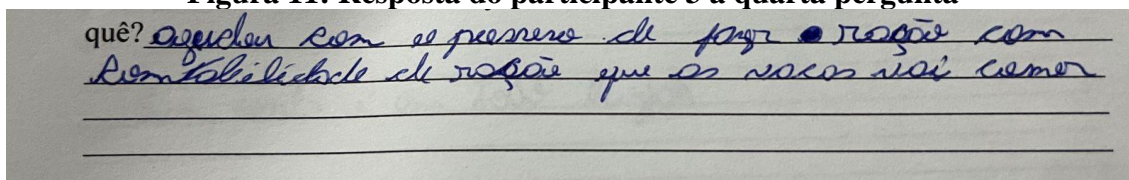 Figura 11: Resposta do participante 3 à quarta pergunta
quê? agudou com as de fazer ração com
comtabilidade de ração que as vacas vai comer